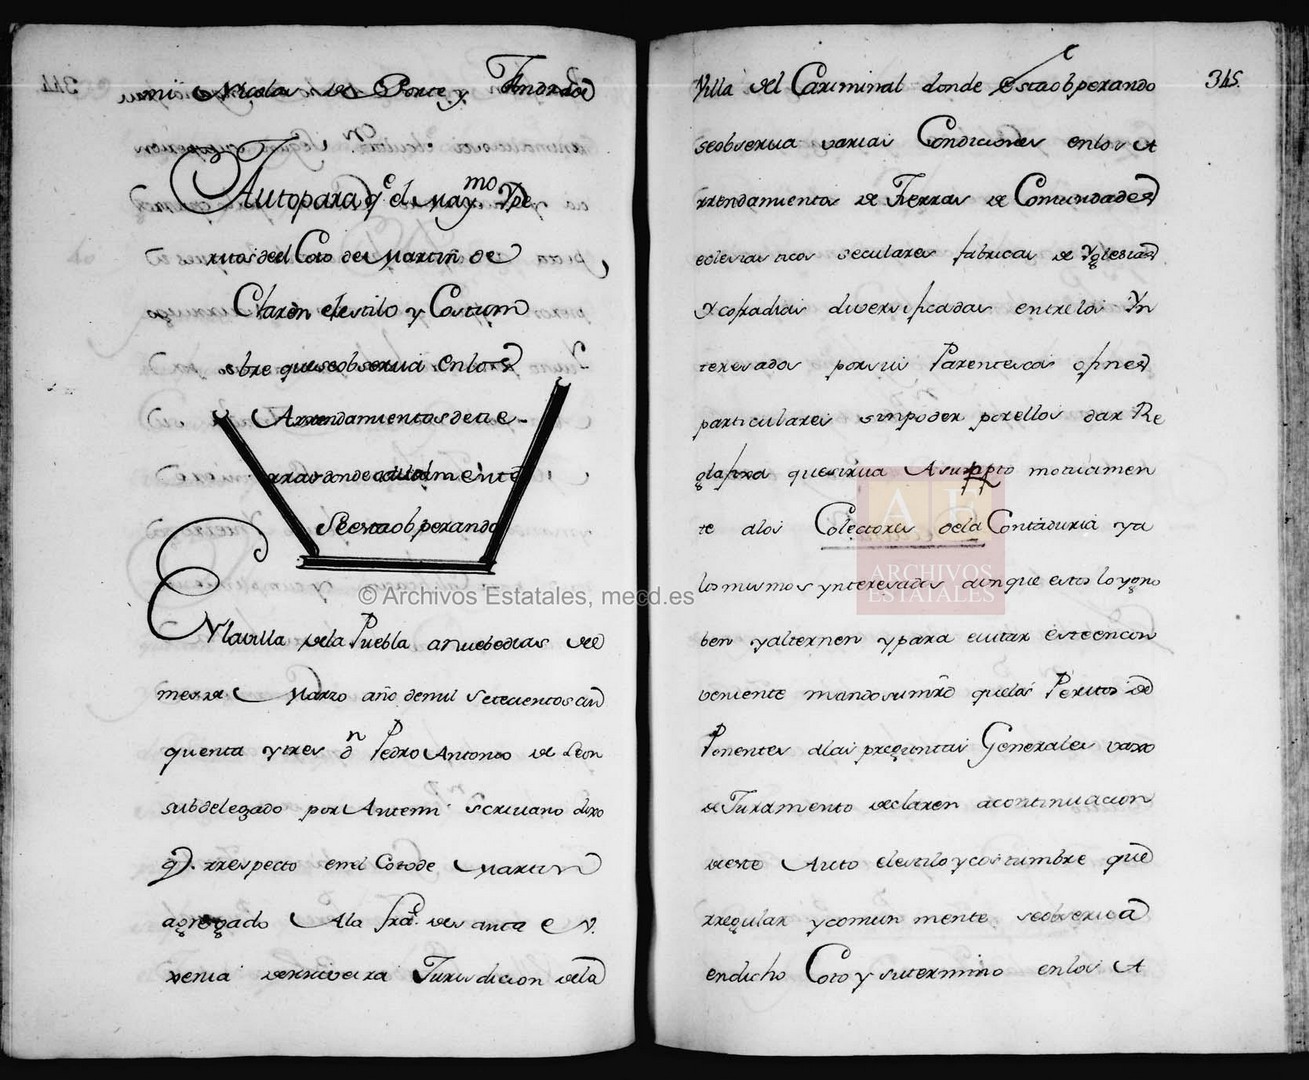 mi Nicolas de Ponte y Andrade
Auto para q.e el May.mo y Pe
ritos de el Coto de Martin de
Claren el estilo y Costum
bre que se obserua en los
Arrendamientos de tie-
rras donde actualmente
Se esta obperando
En la villa de la Puebla a nuebe dias del
mes de Marzo año de mil Setecientos cin
quenta y tres d.n Pedro Antonio de Leon
subdelegado por Antemi scriuano dixo
q.e rrespecto en el Coto de Martin
agregado A la fra. de santa E V.
xenia de rriveira Jurisdicion de la
345.
Villa del Cariminal donde Esta obperando
se obserua varias Condiciones en los A
rrendamientos de Tierras de Comunidades
eclesiasticos seculares fabricas de Yglesias
Y cofradias diversificadas entre los Yn
teresados por sus Parentescos ofines
particulares sin poder por ellos dar Re
gla fixa que sirua A sumpto motiuamen
te a los Colectores de la Contaduria ya
los mismos ynteresados aunque estos lo yno
ben y alternen y para euitar este encon
veniente mando su mrd que los Peritos de
Ponentes a las preguntas Generales vaxo
de Juramento declaren a continuacion
de este Auto el estilo y costumbre que
rregular y comun mente se obserua
en dicho Coto y su termino en los A
© Archivos Estatales, mecd.es
AE
ARCHIVOS
ESTATALES